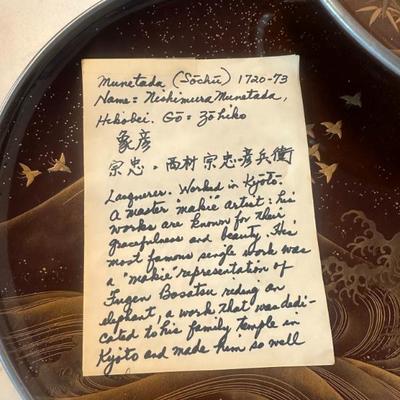 Munetada (Sōchū) 1720-73
Name = Nishimura Munetada,
Hikobei. Gō = Zōhiko
象彦
宗忠・西村宗忠・彦兵衛
Lacquerer. Worked in Kyōto.
A master "makie" artist: his
works are known for their
gracefulness and beauty. His
most famous single work was
a "makie" representation of
Fugen Bosatsu riding an
elephant, a work that was dedi-
cated to his family temple in
Kyōto and made him so well